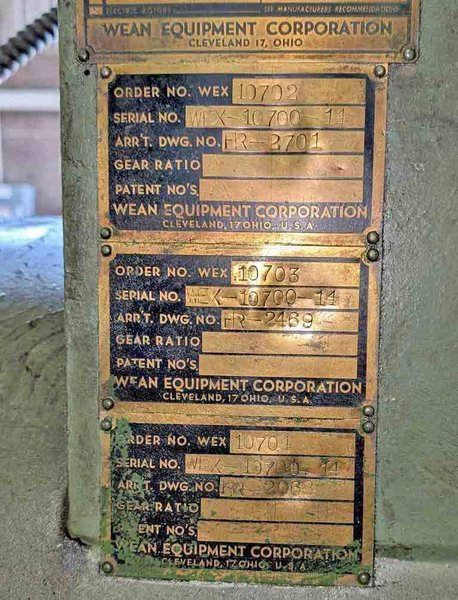 ELECTRIC MOTORS SEE MANUFACTURERS RECOMMENDATIONS
WEAN EQUIPMENT CORPORATION
CLEVELAND 17, OHIO
ORDER NO. WEX 10702
SERIAL NO. WEX-10700-14
ARR'T. DWG. NO. HR-2701
GEAR RATIO
PATENT NO'S.
WEAN EQUIPMENT CORPORATION
CLEVELAND, 17 OHIO, U.S.A.
ORDER NO. WEX 10703
SERIAL NO. WEX-10700-14
ARR'T. DWG. NO. HR-2469
GEAR RATIO
PATENT NO'S.
WEAN EQUIPMENT CORPORATION
CLEVELAND, 17 OHIO, U.S.A.
ORDER NO. WEX 10704
SERIAL NO. WEX-10700-14
ARR'T. DWG. NO.
GEAR RATIO
PATENT NO'S
WEAN EQUIPMENT CORPORATION
CLEVELAND, 17 OHIO, U.S.A.